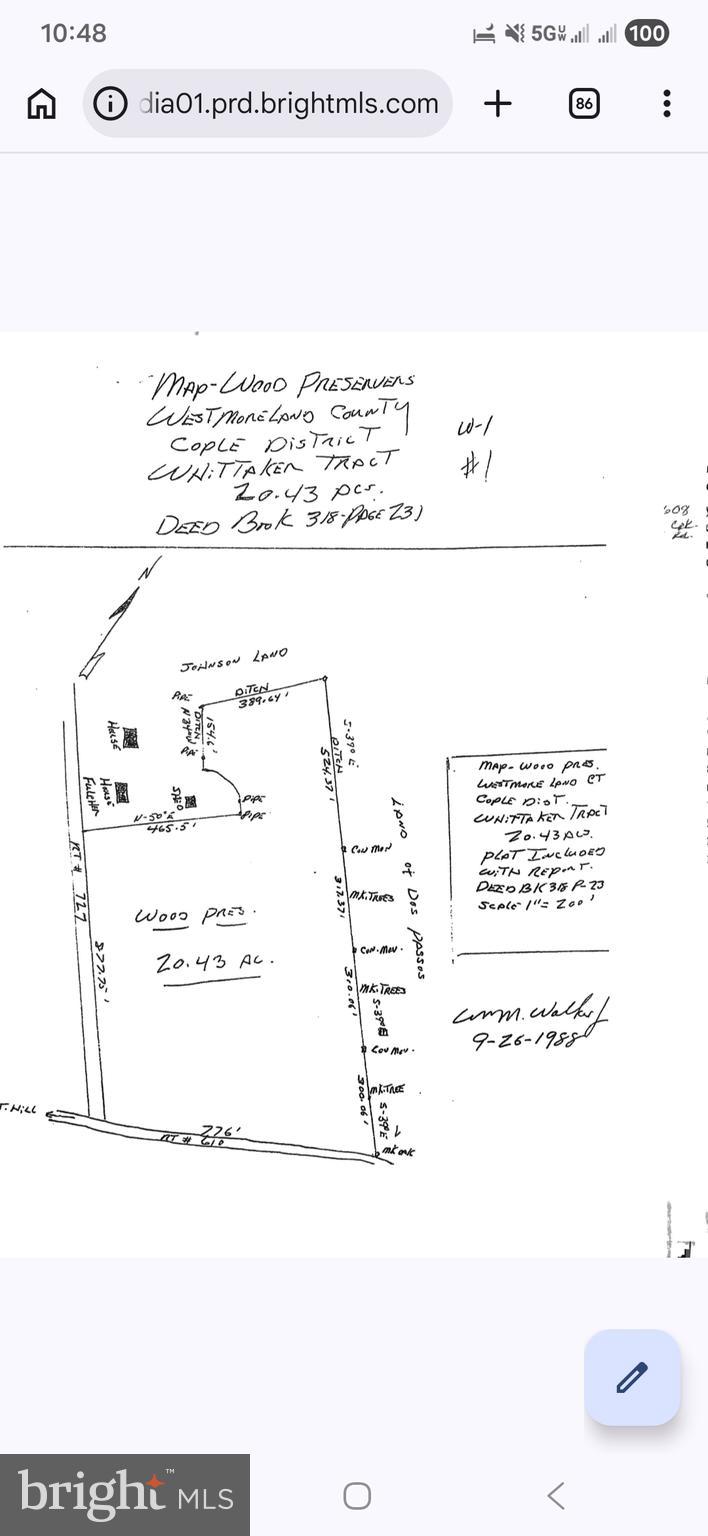 10:48
5G 100
dia01.prd.brightmls.com
86
MAP-WOOD PRESERVERS
WESTMORELAND COUNTY
COPLE DISTRICT
WHITTAKER TRACT
20.43 ACS.
DEED BOOK 318-PAGE 231
W-1
#1
608
N
JOHNSON LAND
PIPE
DITCH
389.64'
DITCH
154.6'
House
House
Fulcher
SHED
PIPE
PIPE
N-50°E
465.5'
S-39° E
DITCH
524.57'
LAND of DOS PASSOS
CON MON
312.57'
MK.TREES
CON.MON.
MK.TREES
310.06'
S-39°E
CON MON.
MK.TREE
300.06'
S-39°E
MK OAK
RT # 727
877.75'
WOOD PRES.
20.43 AC.
T. HILL
776'
RT # 610
MAP-WOOD PRES.
WESTMORELAND CT
COPLE DIST.
WHITTAKER TRACT
20.43 ACS.
PLOT INCLUDED
WITH REPORT.
DEED BK 318 P-23
SCALE 1"= 200'
Wm M. Walker
9-26-1988
bright™ MLS